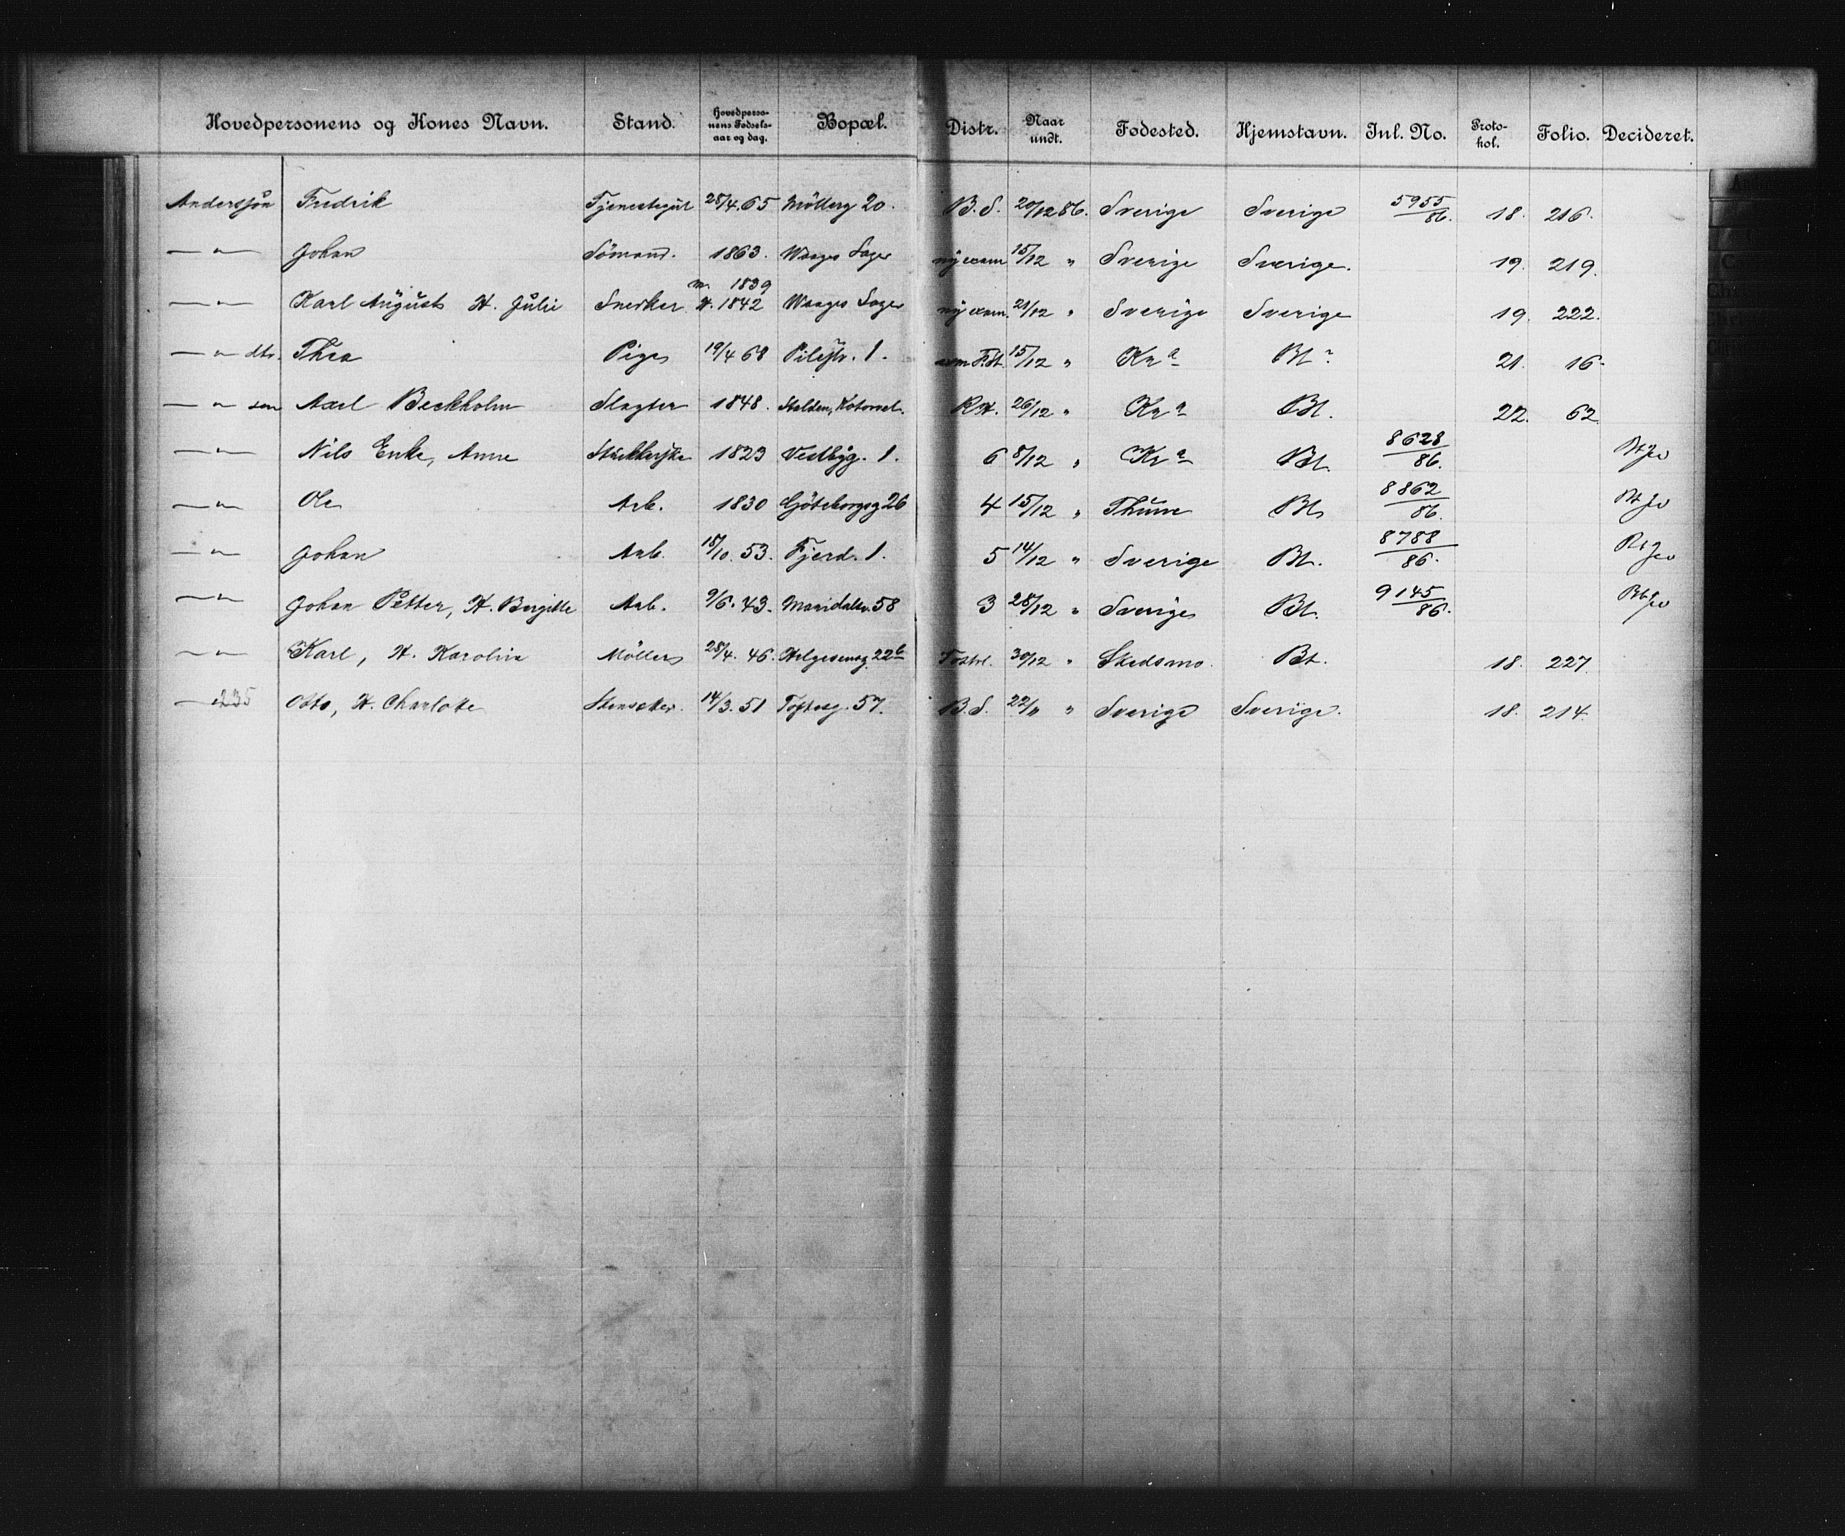 Hovedpersonens og Kones Navn. Stand. Hovedpersonens Fødselsaar og dag. Bopæl. Distr. Naar undt. Fødested. Hjemstavn. Inl. No. Protokol. Folio. Decideret.
Anderssøn Fredrik Tjenestegut 28/4.65 Mölleg 20. B.S. 20/12 86. Sverige Sverige 5955/86. 18. 216.
—"— Johan Sømand. 1863. Waages Løger nÿ exam 15/12 " Sverige Sverige. 19. 219.
—"— Karl Aŭgust H. Jŭlie Snedker m. 1839 H. 1842 Waages Løger nÿ exam. 21/12 " Sverige Sverige 19. 222.
—"— dtr. Thea Pige 19/4 68 Pilestr. 1. 15/12 " Kr a Bt 21. 16.
—"— søn Axel Beckholm Slagter 1848. R.H. 26/12 " Kr a Bt. 22. 62
—"— Nils Enke, Anne 1823 Vestbÿg. 1. 6 8/12 " Kr a Bt. 8628/86.
—"— Ole Arb. 1830 Göteborgsg 26 4 15/12 " Bt 8862/86.
—"— Johan Arb. 18/10. 53. Fjerd. 1. 5 14/12 " Sverige Bt. 8788/86.
—"— Johan Petter, H. Bergitte Arb. 9/6. 43. Maridalsv. 58 3 28/12 " Sverige Bt. 9145/86.
—"— Karl, H. Karoline Möller 28/4. 46. Helgesensg. 22 b 30/12 " Skedsmo. Bt. 18. 227.
—235 Otto, H. Charlotte 14/3. 51 Toftesg. 57. B.S. 22/11 " Sverige Sverige. 18. 214.